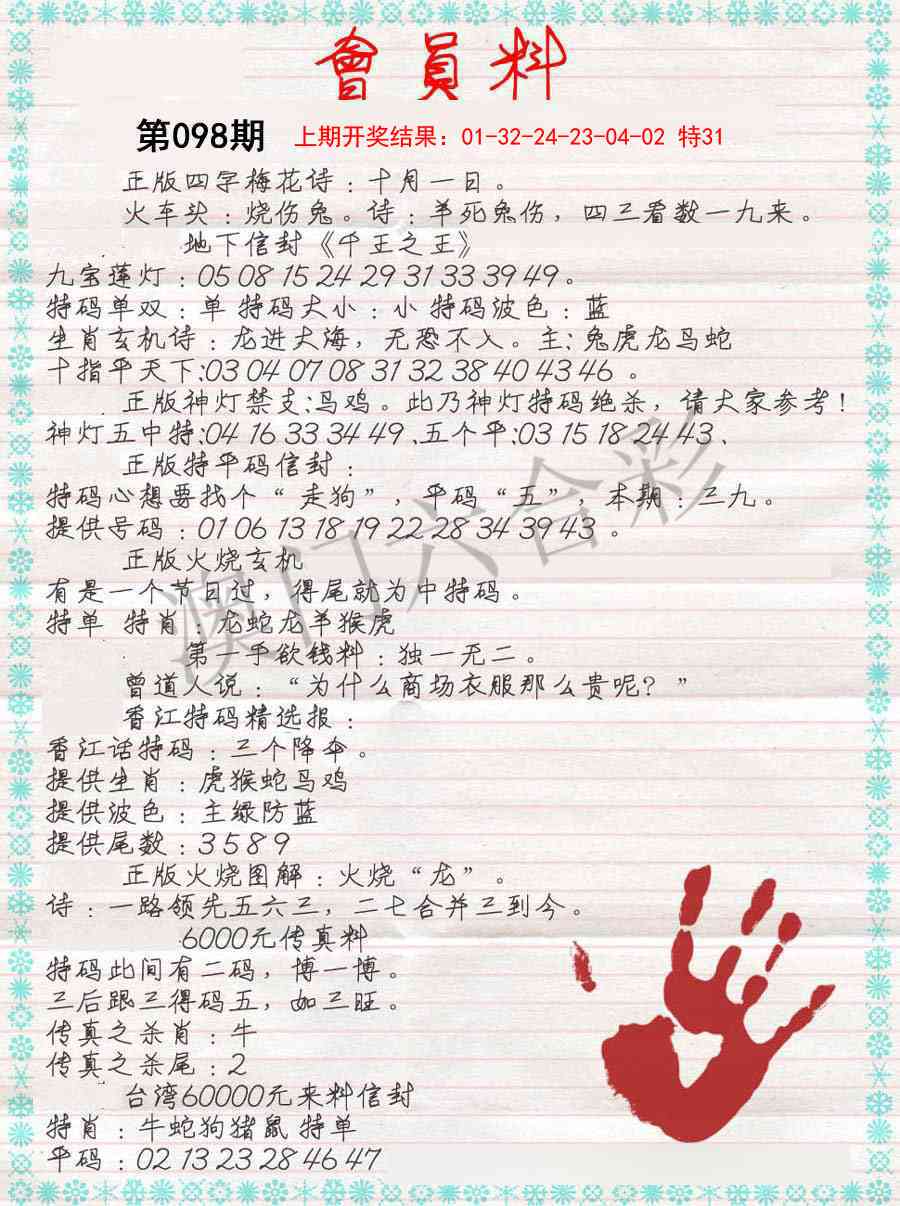 會員料
第098期 上期开奖结果：01-32-24-23-04-02 特31
正版四字梅花诗：十月一日。
火车头：烧伤兔。诗：羊死兔伤，四三看数一九来。
地下信封《千王之王》
九宝莲灯：05 08 15 24 29 31 33 39 49。
特码单双：单 特码大小：小 特码波色：蓝
生肖玄机诗：龙进大海，无恐不入。主: 兔虎龙马蛇
十指平天下:03 04 07 08 31 32 38 40 43 46 。
正版神灯禁支:马鸡。此乃神灯特码绝杀，请大家参考！
神灯五中特:04 16 33 34 49 、五个平:03 15 18 24 43 、
正版特平码信封：
特码心想要找个“走狗”，平码“五”，本期：三九。
提供号码：01 06 13 18 19 22 28 34 39 43 。
正版火烧玄机
有是一个节日过，得尾就为中特码。
特单 特肖：龙蛇龙羊猴虎
第一手欲钱料：独一无二。
曾道人说：“为什么商场衣服那么贵呢？”
香江特码精选报：
香江话特码：三个降伞。
提供生肖：虎猴蛇马鸡
提供波色：主绿防蓝
提供尾数：3 5 8 9
正版火烧图解：火烧“龙”。
诗：一路领先五六三，二七合并三到今。
6000元传真料
特码此间有二码，博一博。
三后跟三得码五，如三旺。
传真之杀肖：牛
传真之杀尾：2
台湾60000元来料信封
特肖：牛蛇狗猪鼠 特单
平码：02 13 23 28 46 47
澳门六合彩